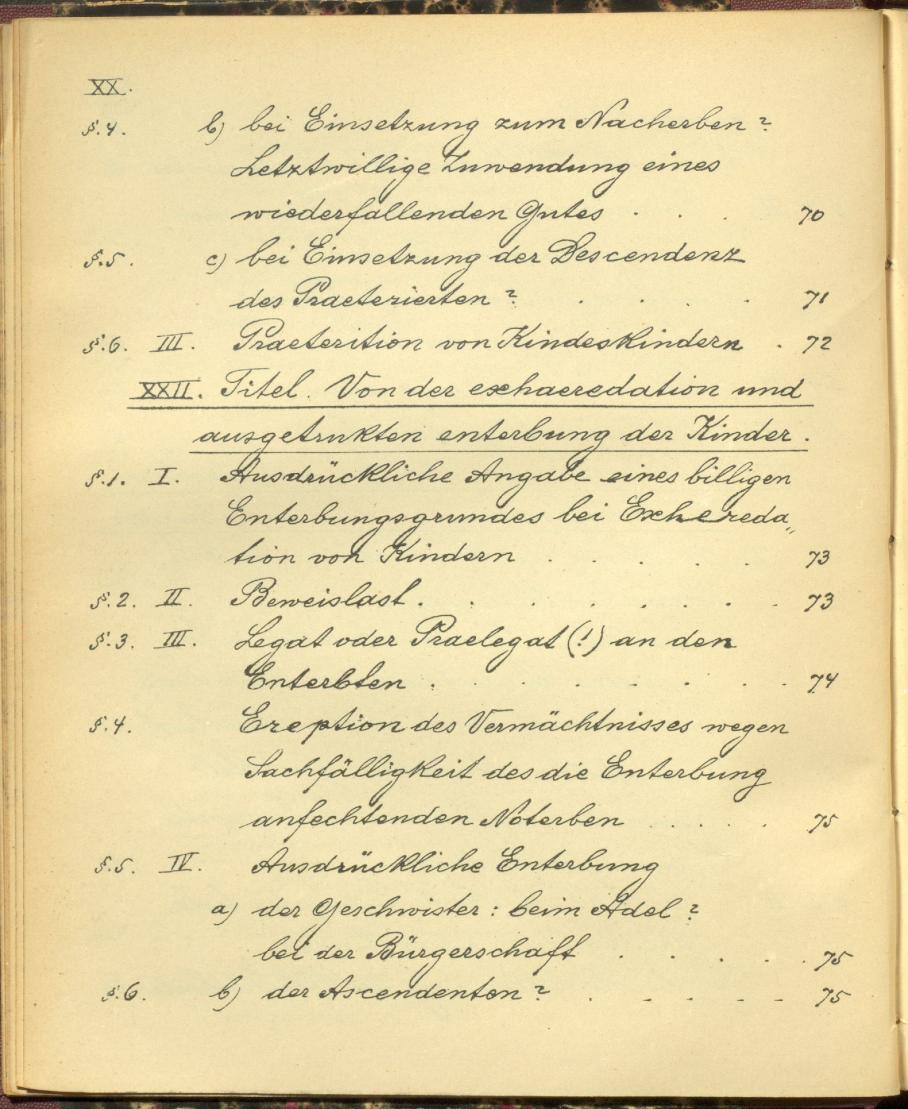 XX.
§.4. b) bei Einsetzung zum Nacherben?
Letztwillige Zuwendung eines
wiederfallenden Gutes . . . 70
§.5. c) bei Einsetzung der Descendenz
des Praeterierten? . . . . 71
§.6. III. Praeterition von Kindeskindern . 72
XXII. Titel. Von der exhaeredation und
ausgetrukten enterbung der Kinder.
§.1. I. Ausdrückliche Angabe eines billigen
Enterbungsgrundes bei Exhereda„
tion von Kindern . . . . . 73
§.2. II. Beweislast . . . . . . . 73
§.3. III. Legat oder Praelegat (!) an den
Enterbten . . . . . . . 74
§.4. Ereption des Vermächtnisses wegen
Sachfälligkeit des die Enterbung
anfechtenden Noterben . . . . 75
§.5. IV. Ausdrückliche Enterbung
a) der Geschwister: beim Adel?
bei der Bürgerschaft . . . . . 75
§.6. b) der Ascendenten? . . . . . 75